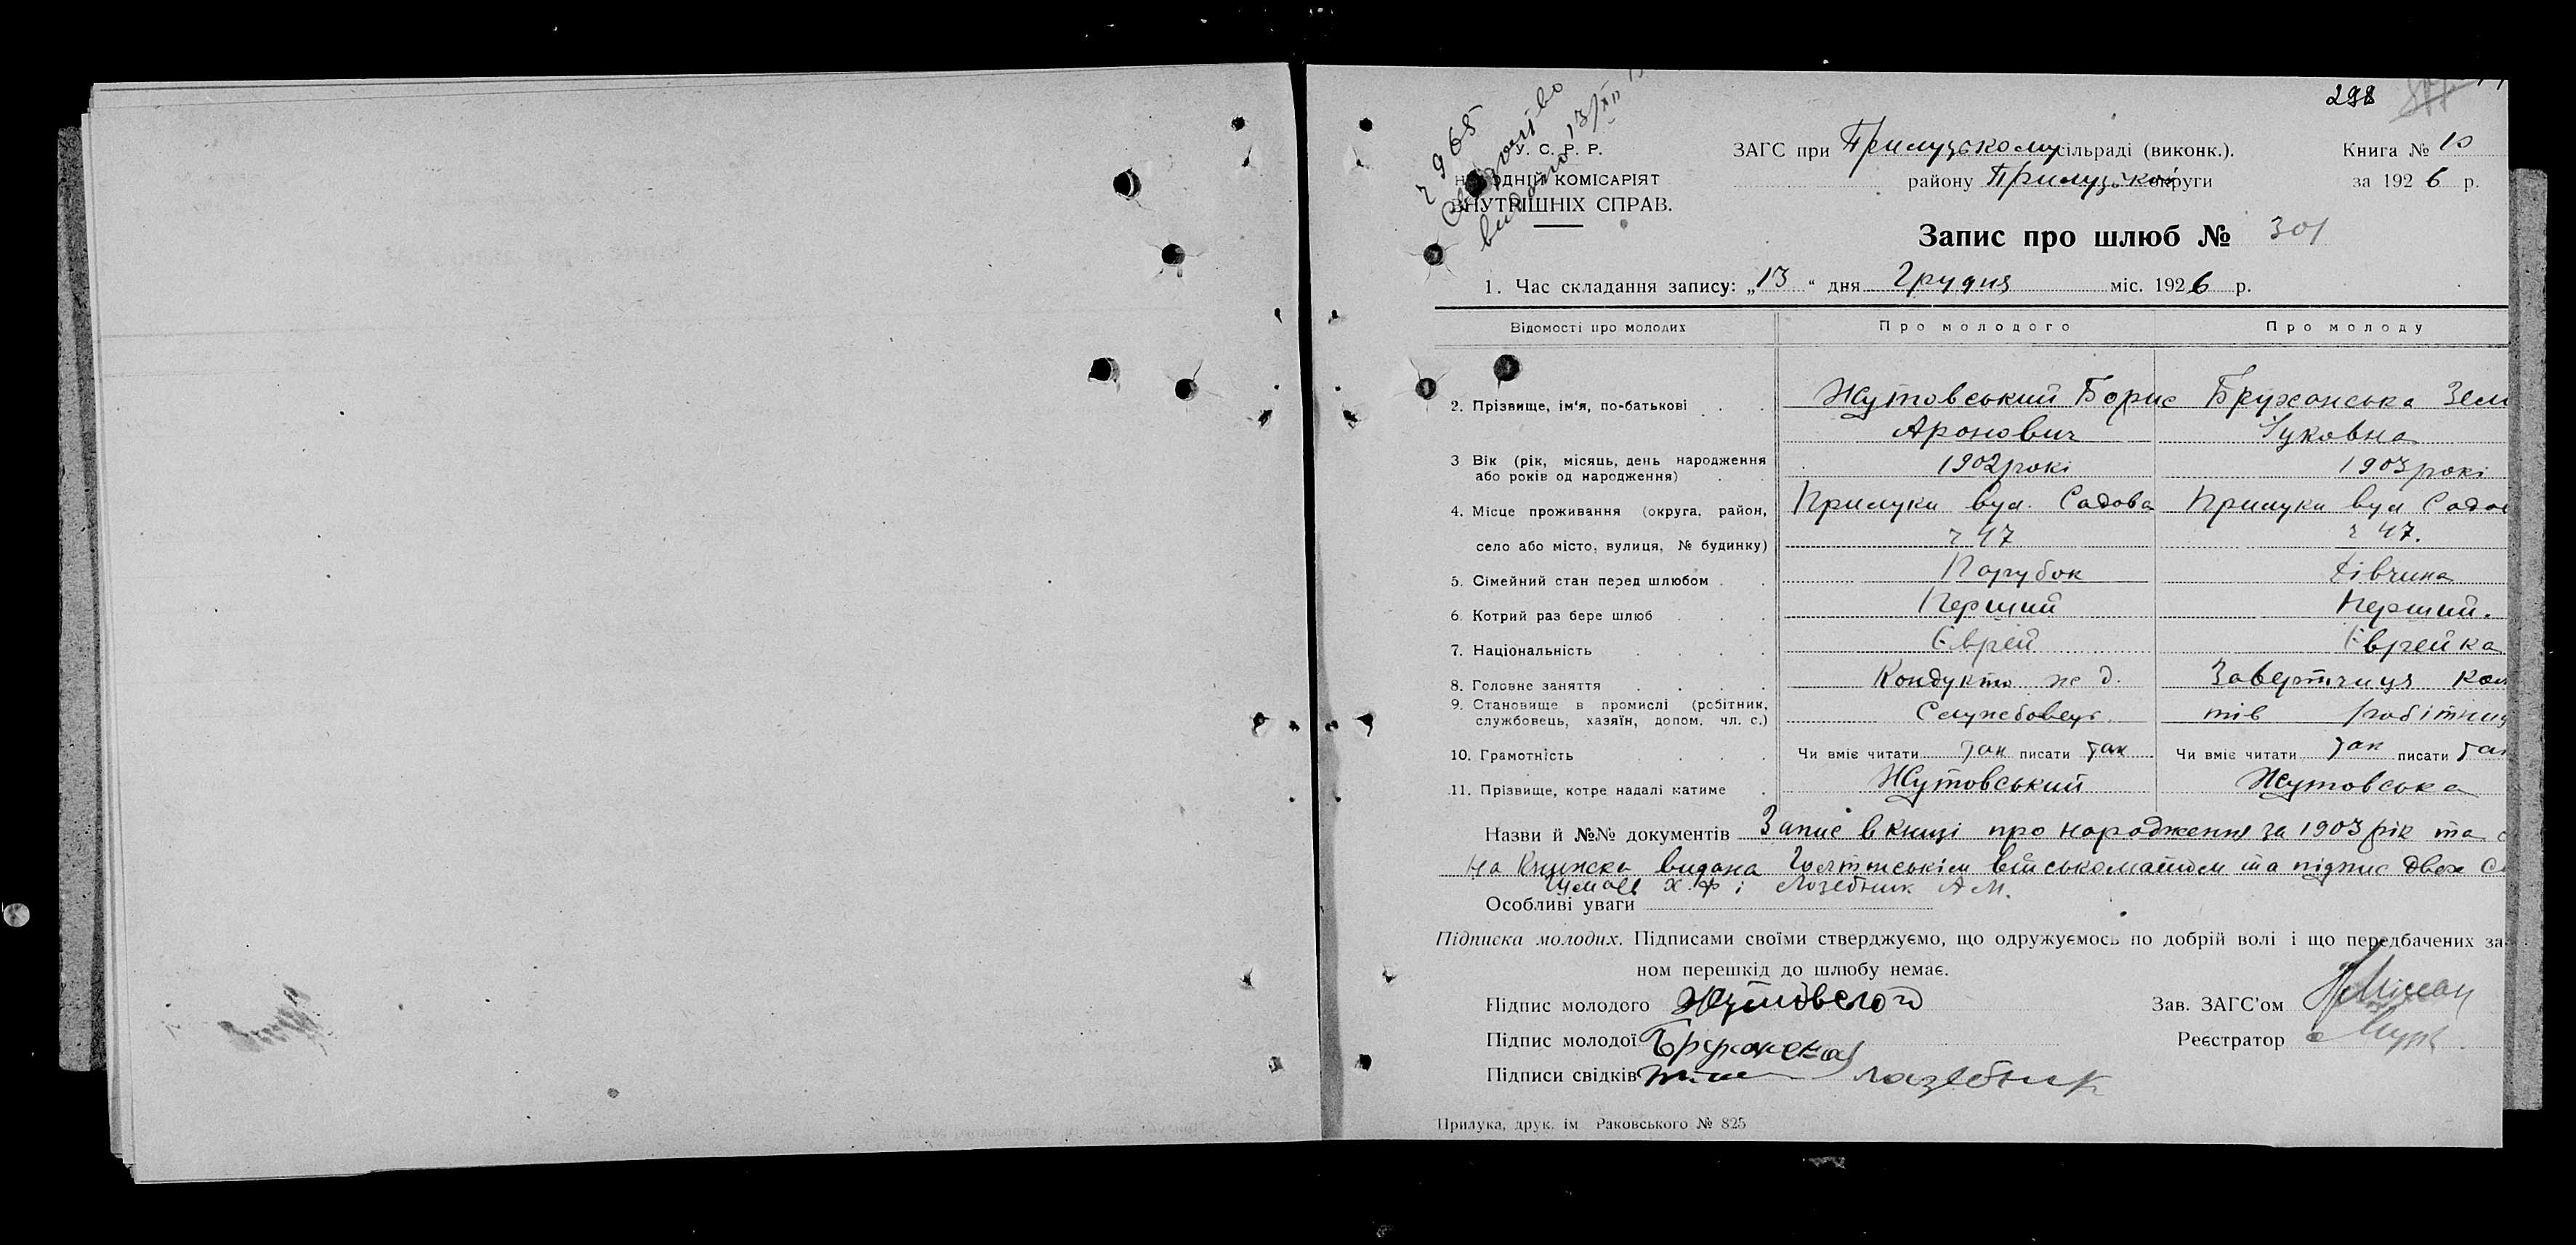 298
ч 965
Свідоцтво
видано 13/XII
У. С. Р. Р.
НАРОДНІЙ КОМІСАРІЯТ
ВНУТРІШНІХ СПРАВ.
ЗАГС при Прилуцькому сільраді (виконк.).
району Прилуцької округи
Книга № 10
за 1926 р.
Запис про шлюб № 301
1. Час складання запису: „13“ дня Грудня міс. 1926 р.
Відомості про молодих Про молодого Про молоду
2. Прізвище, ім'я, по-батькові Жутовський Борис Бружанська Зел
Аронович Іуковна
3 Вік (рік, місяць, день народження або років од народження) 1902 рокі 1903 рокі
4. Місце проживання (округа, район, Прилуки вул. Садова Прилуки вул Садов
село або місто, вулиця, № будинку) ч 47 ч 47.
5. Сімейний стан перед шлюбом Парубок Дівчина
6. Котрий раз бере шлюб Перший Перший.
7. Національність Єврей Єврейка
8. Головне заняття Кондукто ж д. Завертчиця кон
9. Становище в промислі (робітник, службовець, хазяїн, допом. чл. с.) Службовець тів робітниц
10. Грамотність Чи вміє читати так писати так Чи вміє читати так писати так
11. Прізвище, котре надалі матиме Жутовський Жутовська
Назви й №№ документів Запис в книзі про народження за 1903 рік та
на Книжка видана військоматом та підпис двох С
Х. Ф і Лозебник А М.
Особливі уваги
Підписка молодих. Підписами своїми стверджуємо, що одружуємось по добрій волі і що передбачених за
ном перешкід до шлюбу немає.
Підпис молодого Жутовской Зав. ЗАГС'ом
Підпис молодої Бружанская Реєстратор
Підписи свідків Лазебник
Прилука, друк. ім Раковського № 825